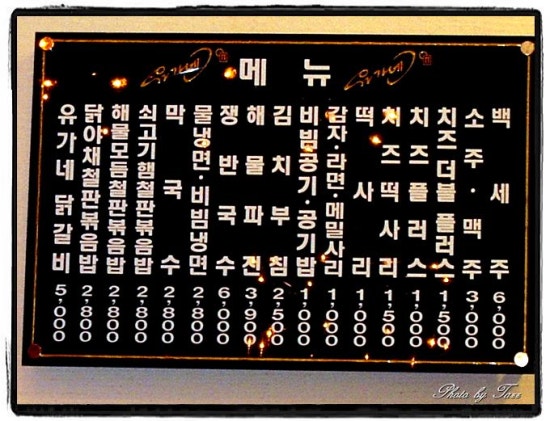 유가네 메뉴 유가네
유가네닭갈비 5,000
닭야채철판볶음밥 2,800
해물모듬철판볶음밥 2,800
쇠고기햄철판볶음밥 2,800
막국수 2,800
물냉면·비빔냉면 2,800
쟁반국수 6,000
해물파전 3,900
김치부침 2,500
비빔공기·공기밥 1,000
감자·라면·메밀사리 1,000
떡사리 1,000
치즈떡사리 1,500
치즈플러스 1,000
치즈더블플러스 1,500
소주·맥주 3,000
백세주 6,000
Photo by Tazz